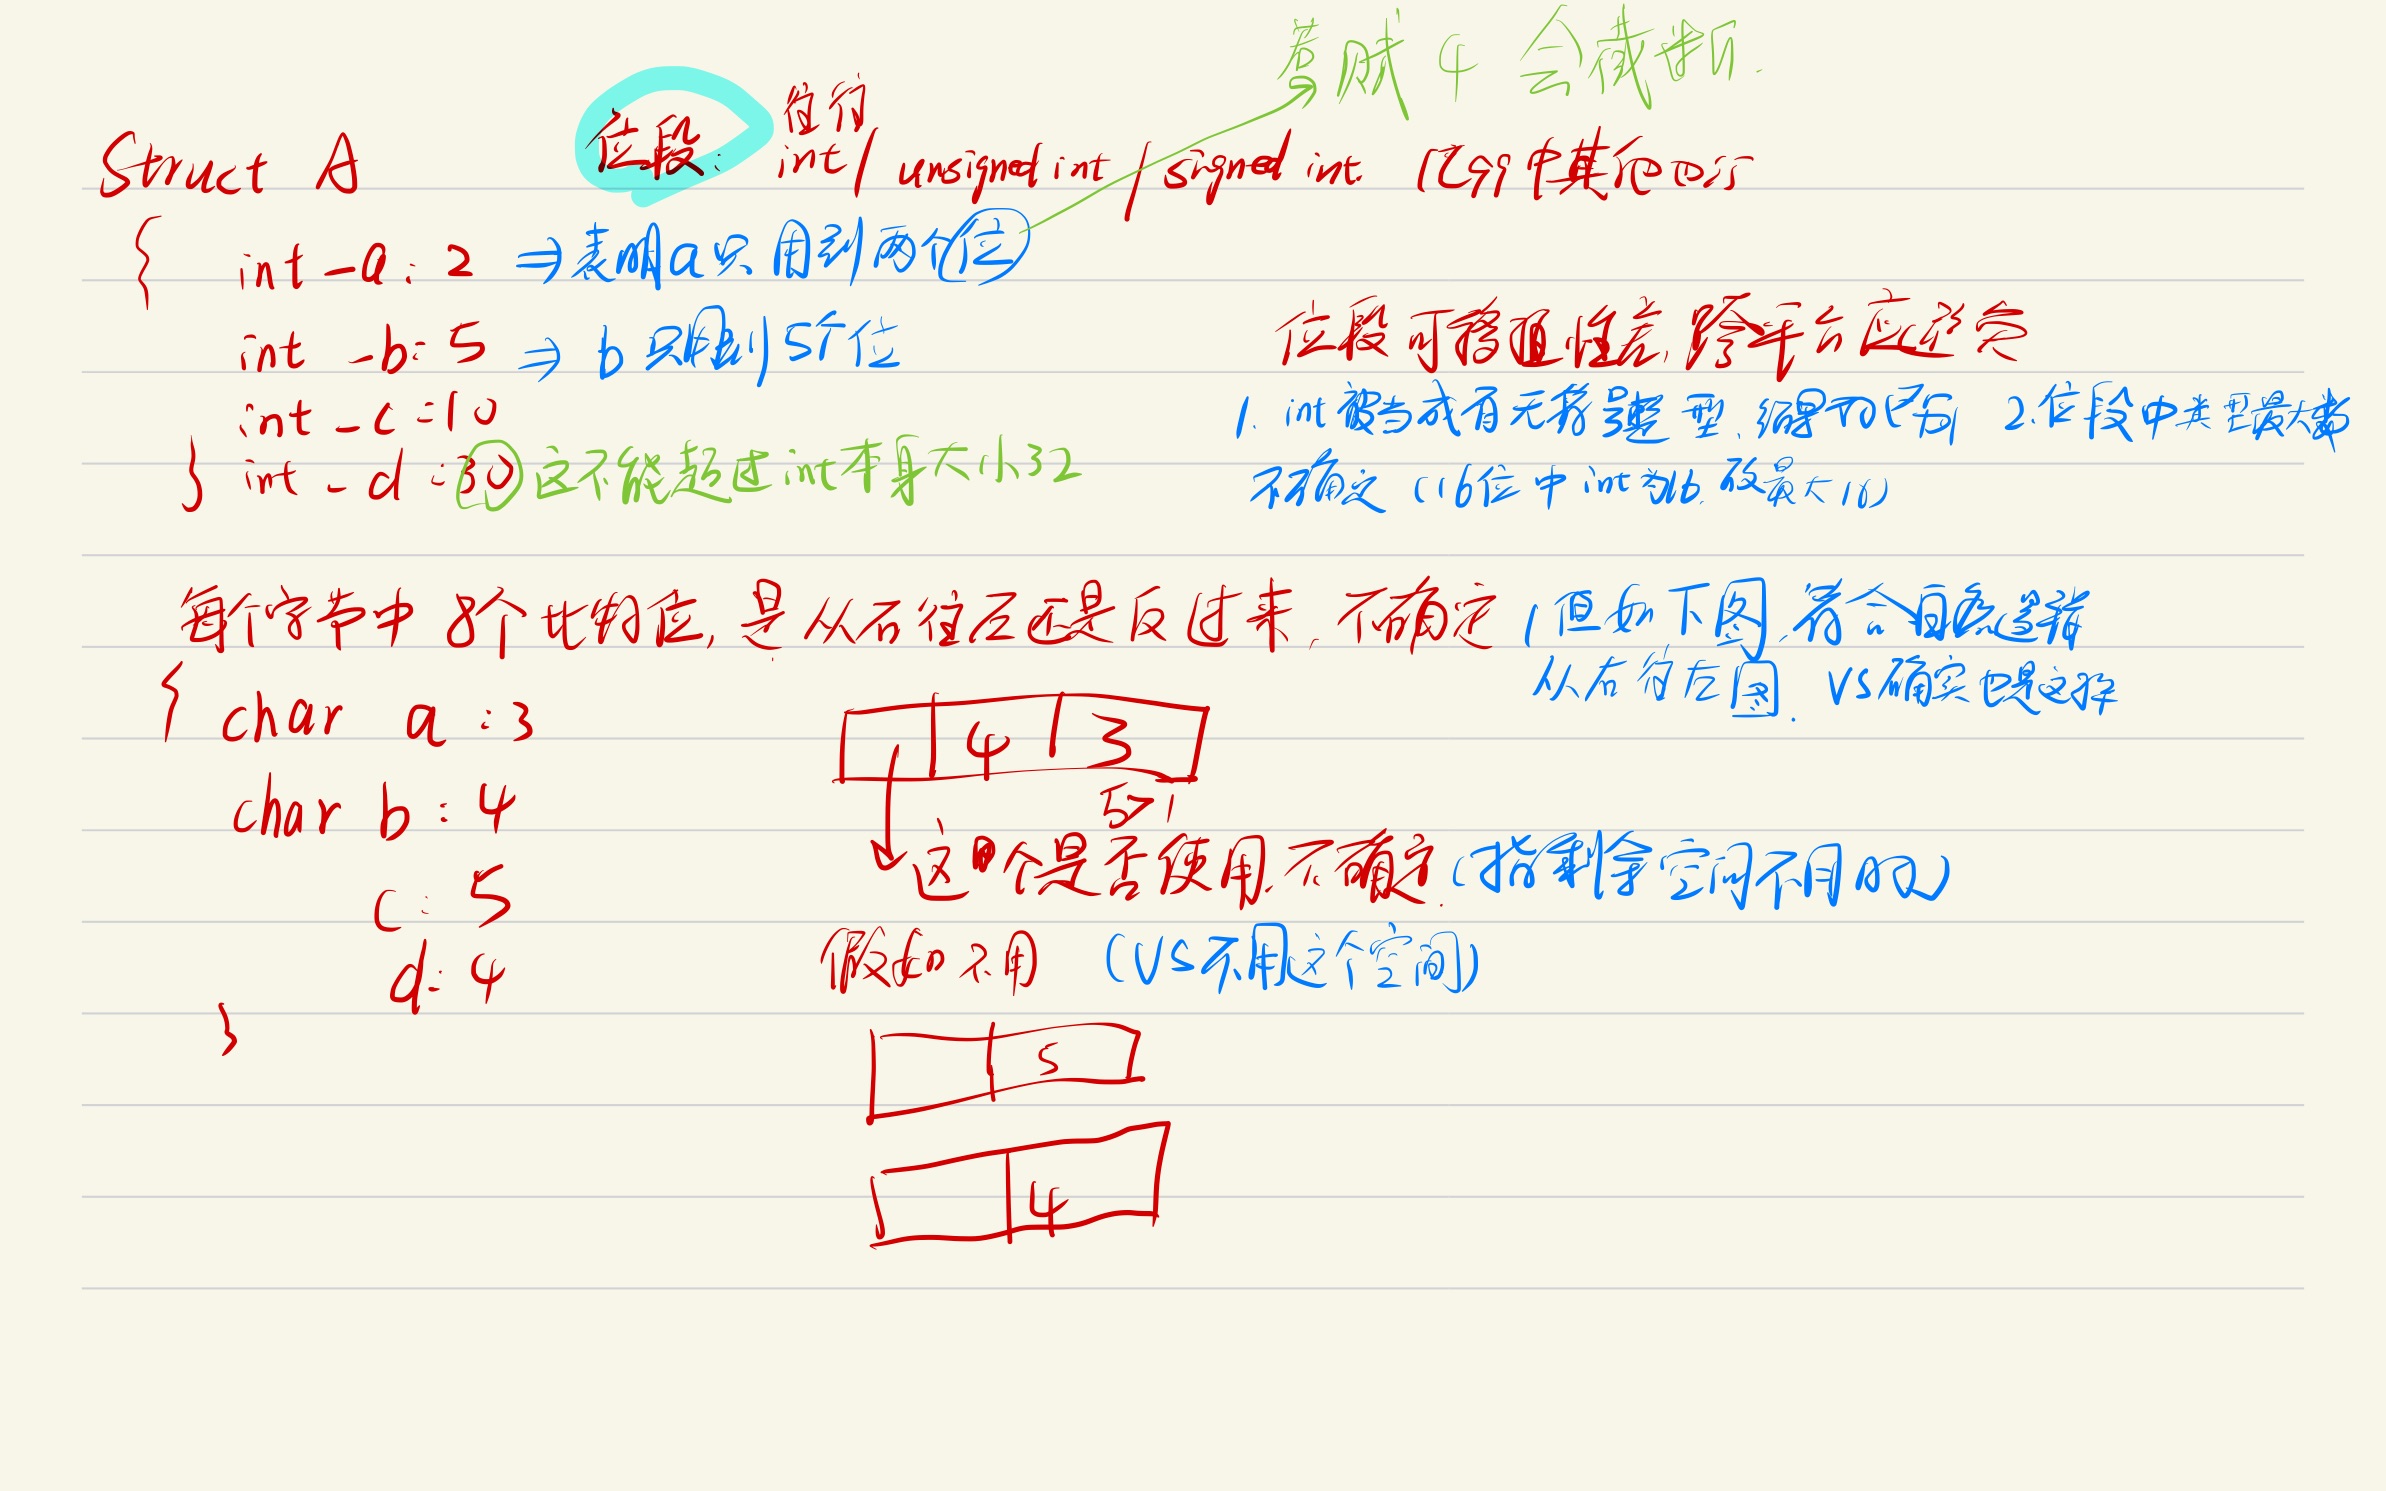 若赋4会截断.
Struct A 位段: 往往 int / unsigned int / signed int. (C99中其他也行
{ int _a: 2 ⇒ 表明a只用到两个位
int _b: 5 ⇒ b只用到5个位
位段可移植性差,跨平台应避免
int _c: 10
1. int被当成有无符号整型,结果可 2.位段中类型最大数
} int _d: 30 这不能超过int本身大小32
不确定 (16位中int为16,故最大16)
每个字节中8个比特位,是从右往左还是反过来,不确定,但如下图,符合自然逻辑
从右往左图. VS确实也是这样
{ char a: 3
4 3
char b: 4
5>1
这1个是否使用,不确定.(指剩余空间不用的)
c: 5
d: 4
假如不用 (VS不用这个空间)
}
5
4